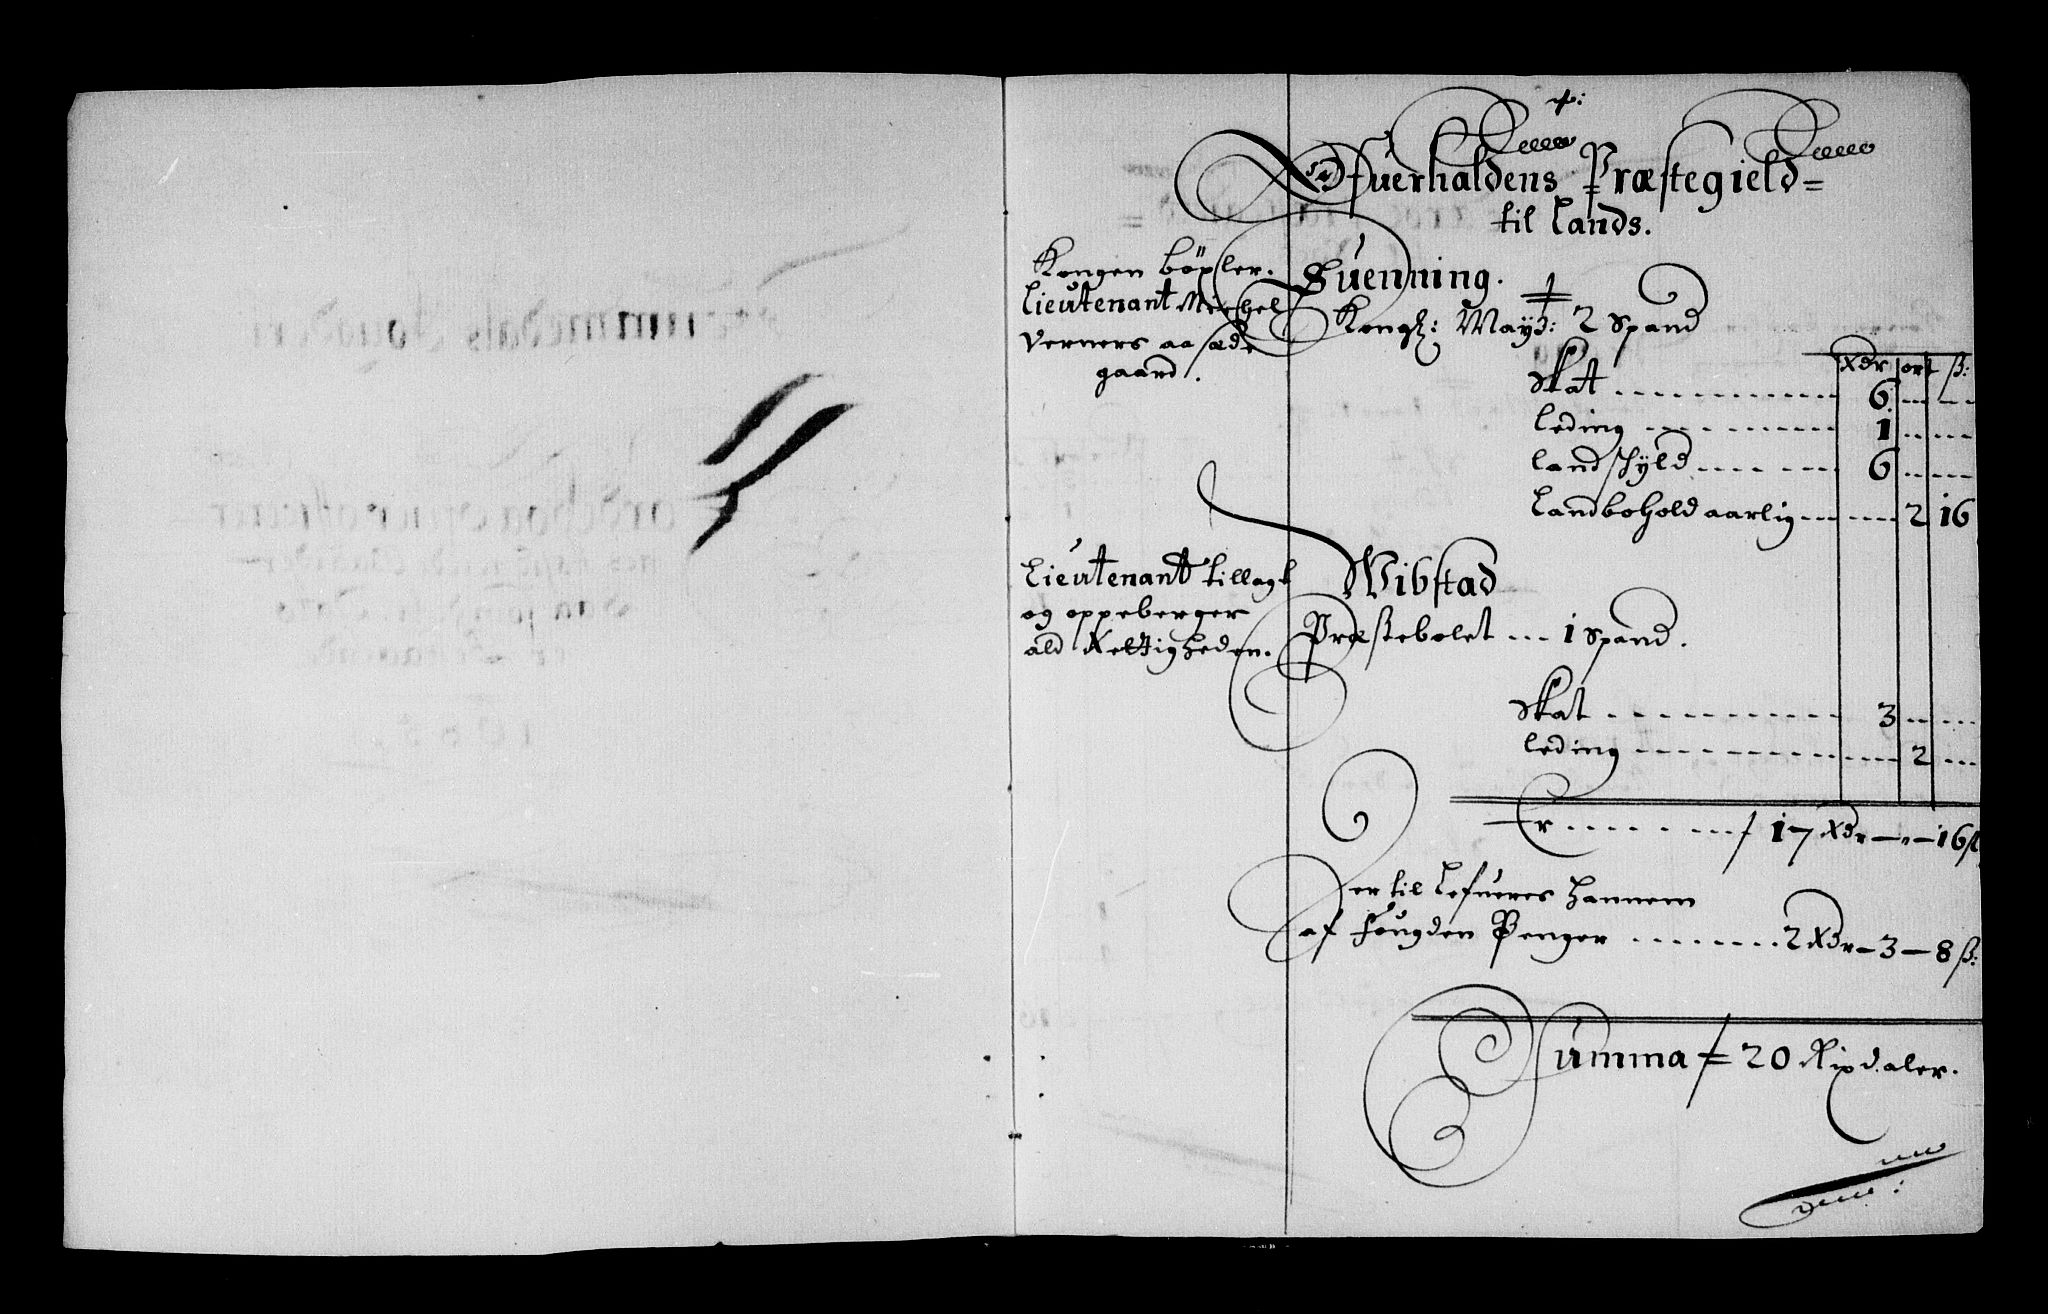 Ofuerhaldens Præstegield=
til Lands.
Kongen böxler.
Lieutenant Michel
Verners aasæde
gaard.
Suenning.
Kongl: Mayᵈ: 2 Spand
Xdr ort ß:
Skat 6
leding 1
landskyld 6
Landbohold aarlig 2 16
Lieutenant tillagt
og oppeberger
ald Rettigheden.
Wibstad
Præstebolet ... 1 Spand.
Skat 3
leding 2
Er 17 Xdr — „ — 16 ß
Der til Lefueres hannem
af Fougden Penger 2 Xdr — 3 — 8 ß:
Summa 20 Rixdaler.